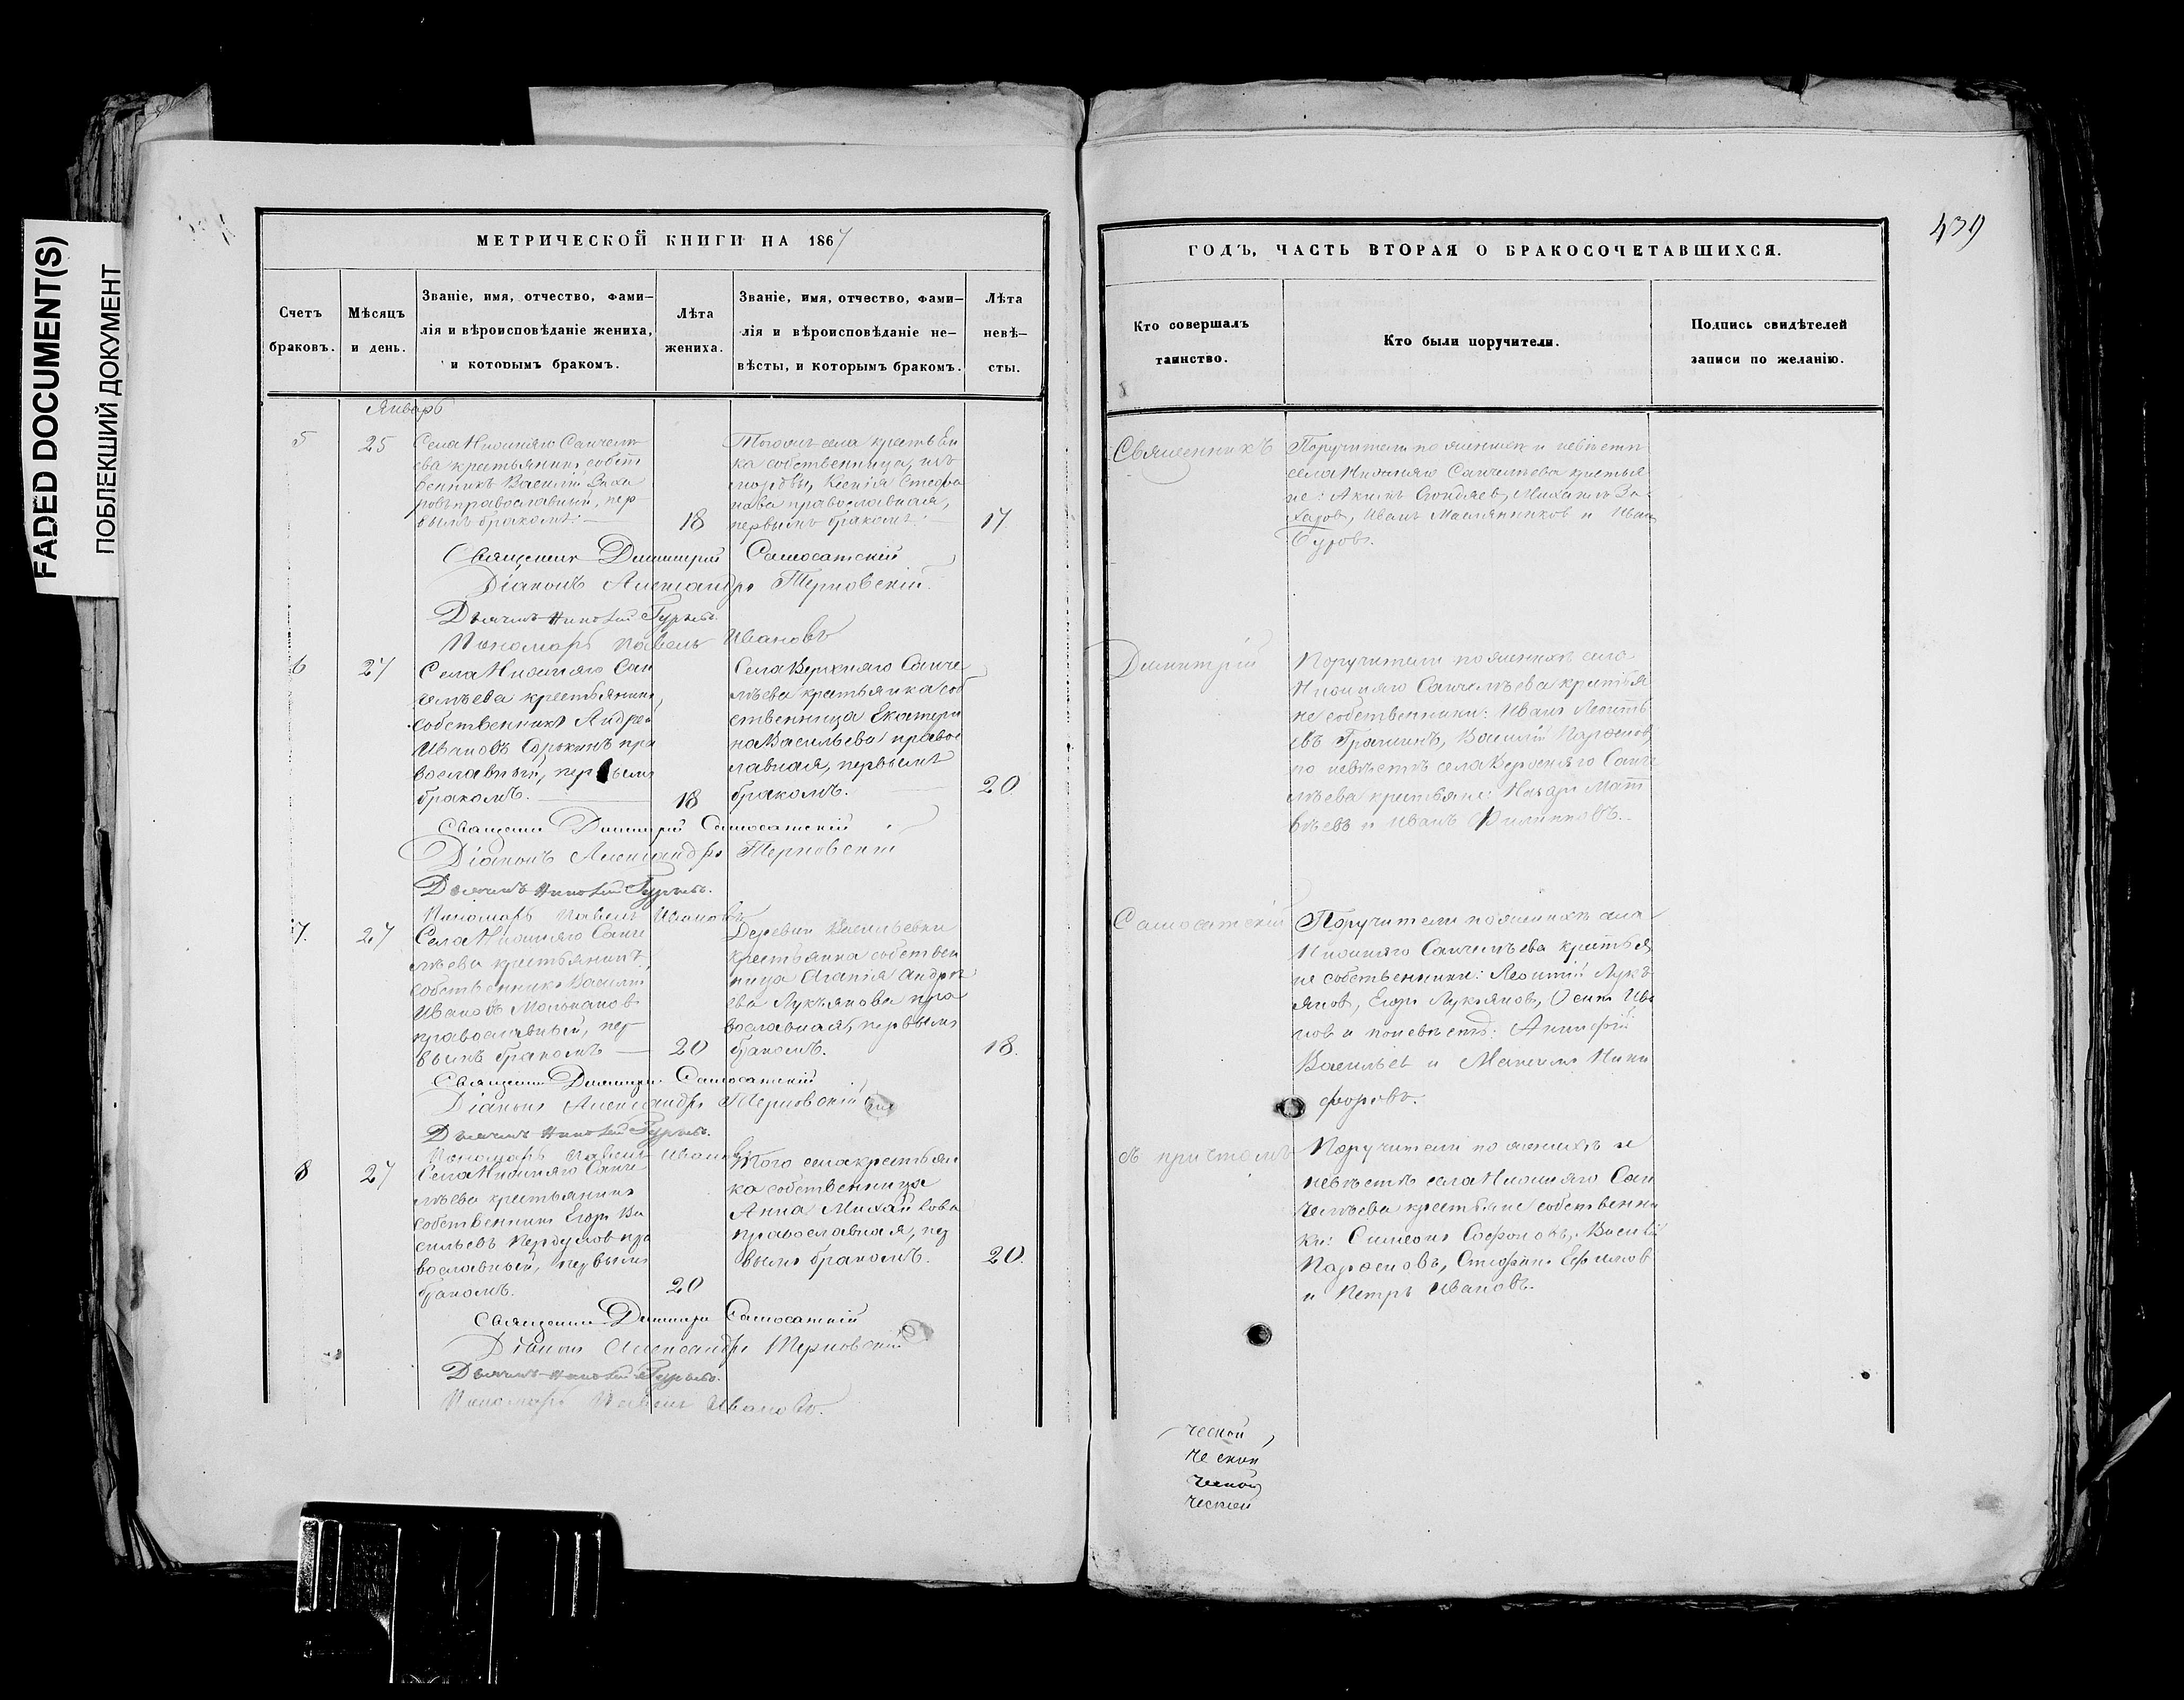 FADED DOCUMENT(S)
ПОБЛЕКШИЙ ДОКУМЕНТ
МЕТРИЧЕСКОЙ КНИГИ НА 1867
Счетъ
браковъ.
Мѣсяцъ
и день.
Званіе, имя, отчество, фами-
лія и вѣроисповѣданіе жениха,
и которымъ бракомъ.
Лѣта
жениха.
Званіе, имя, отчество, фами-
лія и вѣроисповѣданіе не-
вѣсты, и которымъ бракомъ.
Лѣта
невѣ-
сты.
Январь
5
25
Села Нижняго Санчелѣ
ева крестьянинъ собст
венникъ Василій Заха
ровъ православный, пер
вымъ бракомъ.
18
села крестьян
ка собственница, изъ
мордвы, Ксенія Стефа
нова православная,
первымъ бракомъ.
17
Священник Димитрій Самосатскій
Діаконъ Александръ Терновскій.
Дьячекъ Николай Гурьевъ.
Пономарь Павелъ Ивановъ
6
27
Села Нижняго Сан
челѣева крестьянинъ
собственникъ Андрей
Ивановъ Сорокинъ пра
вославный, первымъ
бракомъ.
18
Села Верхняго Санче
лѣева крестьянка соб
ственница Екатери
на Васильева правос
лавная, первымъ
бракомъ.
20
Священник Димитрій Самосатскій
Діаконъ Александръ Терновскій
Дьячекъ Николай Гурьевъ.
Пономарь Павелъ Ивановъ
7.
27
Села Нижняго Санче
лѣева крестьянинъ
собственникъ Василій
Ивановъ Молчанов
православный, пер
вымъ бракомъ
20
Деревни Васильевки
крестьянка собствен
ница Агапія Андре
ева Лукьянова пра
вославная, первымъ
бракомъ.
18.
Священник Димитрій Самосатскій
Діаконъ Александръ Терновскій
Дьячекъ Николай Гурьевъ.
Пономарь Павелъ Ивановъ
8
27
Села Нижняго Санче
лѣева крестьянинъ
собственникъ Егоръ Ва
сильевъ пра
вославный, первымъ
бракомъ.
20
Того села крестьян
ка собственница
Анна Михайлова
православная, пер
вымъ бракомъ.
20.
Священник Димитрій Самосатскій
Діаконъ Александръ Терновскій
Дьячекъ Николай Гурьевъ.
Пономарь Павелъ Ивановъ.
439
ГОДЪ, ЧАСТЬ ВТОРАЯ О БРАКОСОЧЕТАВШИХСЯ.
Кто совершалъ
таинство.
Кто были поручители.
Подпись свидѣтелей
записи по желанію.
Священникъ
Димитрій
Самосатскій
съ причтомъ
Поручители по женихѣ и невѣстѣ
села Нижняго Санчелѣева крестья
не: Акимъ Михаилъ За
харовъ, Иванъ Масленниковъ и Иванъ
Буровъ.
Поручители по женихѣ села
Нижняго Санчелѣева крестья
не собственники: Иванъ Леонтъ
евъ Василій Парфенов,
по невѣстѣ села Верхняго Санче
лѣева крестьяне: Назаръ Мат
вѣевъ и Иванъ Филипповъ.
Поручители по женихѣ села
Нижняго Санчелѣева крестья
не собственники: Леонтій Лукь
янов, Егоръ Лукьянов, Осипъ Ива
нов и по невѣстѣ:
Васильев и Максимъ Ники
форовъ.
Поручители по женихѣ и
невѣстѣ села Нижняго Сан
челѣева крестьяне собственни
ки: Симеонъ Василій
Парфеновъ, Стефанъ Ефимов
и Петръ Ивановъ.
ческой
ческой
ческой
ческой